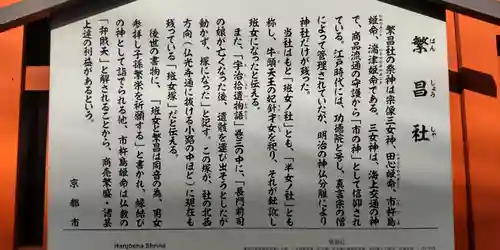 繁昌社
はん
じょう
しゃ
繁昌社の祭神は宗像三女神、田心姫命、市杵島
姫命、湍津姫命である。三女神は、海上交通の神
で、商品流通の守護から「市の神」として信仰され
ている。江戸時代には、功徳院と号し、真言宗の僧
によって管理されていたが、明治の神仏分離により
神社だけが残った。
当社はもと「班女ノ社」とも、「半女ノ社」とも
称し、牛頭天王の妃針才女を祀り、それが転訛し
班女になったと伝える。
また、「宇治拾遺物語」巻三の中に、「長門前司
の娘が亡くなった後、遺骸を運び出そうとしたが
動かず、塚になった」と記す。この塚が、社の北西
方向(仏光寺通に抜ける小路の中ほど)に現在も
残っている「班女塚」だと伝える。
後世の書物に、「班女と繁昌は同音の為、男女
参拝し子孫繁栄を祈願する」と書かれ、縁結び
の神として詣でられる他、市杵島姫命は仏教の
「弁戝天」と解されることから、商売繁盛・諸芸
上達の利益があるという。
京都市
Hanjosha Shrine